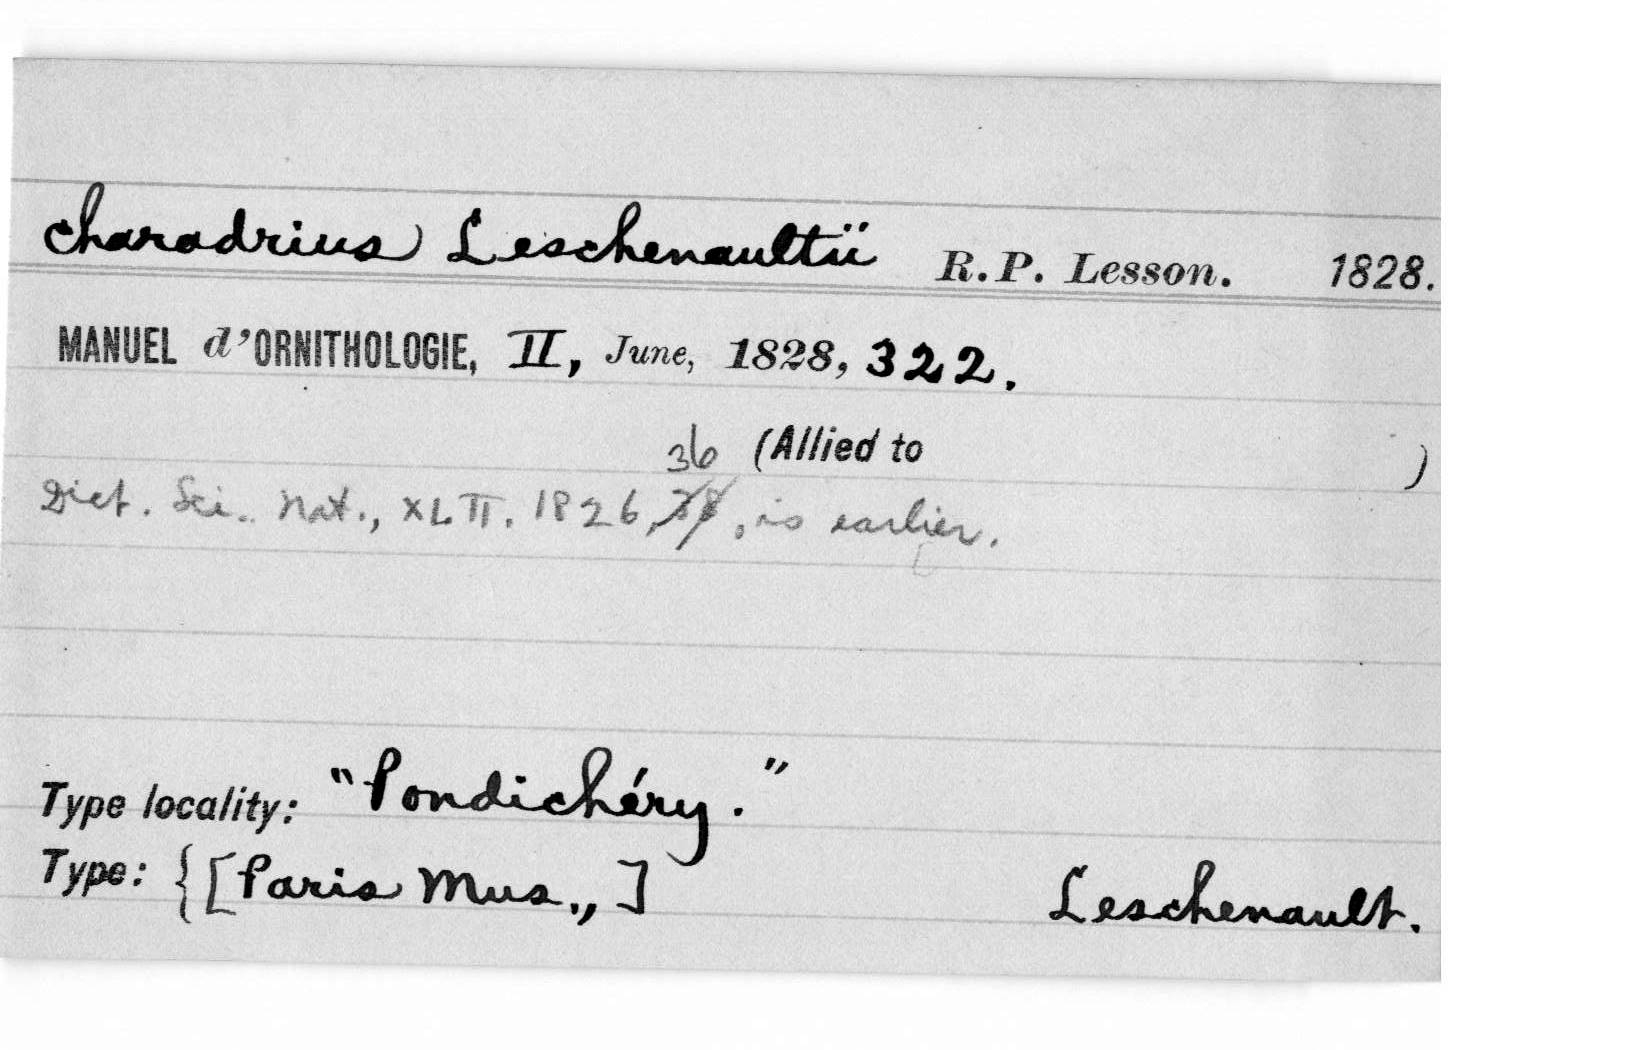 Charadrius Leschenaultii R.P. Lesson. 1828.
MANUEL d'ORNITHOLOGIE, II, June, 1828, 322.
36 (Allied to )
Dict. Sci. Nat., XLII. 1826, 38, is earlier.
Type locality: "Pondichéry."
Type: {[Paris Mus., ] Leschenault.